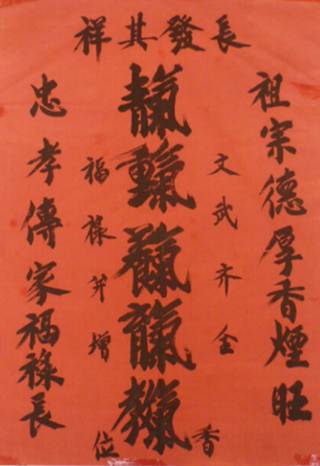 長發其祥
祖宗德厚香煙旺
文武齐全
福禄并增
忠孝傳家福祿長
香
位